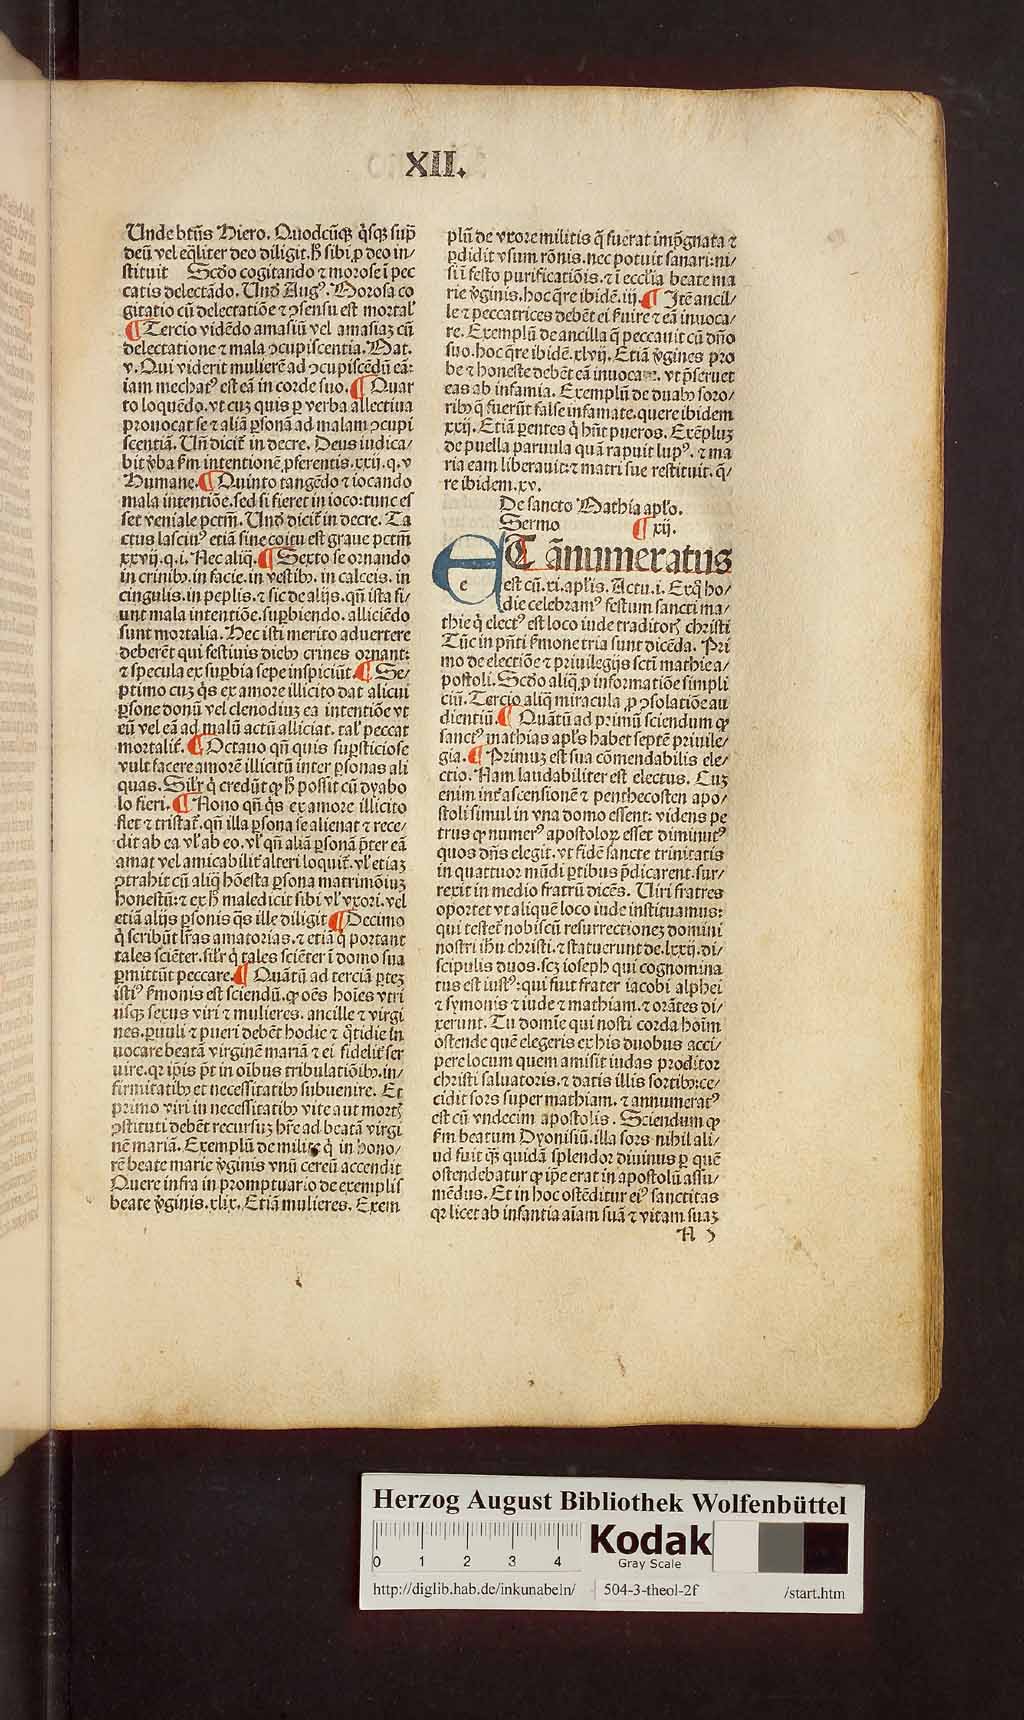 XII.
Unde btūs Hiero. Quodcūqꝫ q̇sqꝫ sup̄
deū vel eq̄liter deo diligit. hͦ sibi ꝓ deo in/
stituit Scďo cogitando ⁊ morose ī pec
catis delectādo. Unď Augꝰ. Morosa co
gitatio cū delectatiōe ⁊ ꝯsensu est mortal̓
¶ Tercio vidēdo amasiū vel amasiaꝫ cū
delectatione ⁊ mala ꝯcupiscentia. Mat.
v. Qui viderit mulierē ad ꝯcupiscēdū eā:
iam mechatꝰ est eā in corde suo. ¶ Quar
to loquēdo. vt cuꝫ quis ꝑ verba allectiua
prouocat se ⁊ aliā ꝑsonā ad malam ꝯcupi
scentiā. Uñ dicit̄ in decre. Deus iudica/
bit ṽba ẜm intentionē ꝓferentis. xxij. q. v
Humane. ¶ Quinto tangēdo ⁊ iocando
mala intentiōe. sed si fieret in ioco: tunc es
set veniale pctm̄. Unď dicit̄ in decre. Ta
ctus lasciuꝰ etiā sine coitu est graue pctm̄
xxvij. q. i. Nec aliq̄. ¶ Sexto se ornando
in crinibꝫ. in facie. in vestibꝫ. in calceis. in
cingulis. in peplis. ⁊ sic de alijs. qn̄ ista fi/
unt mala intentiōe. suꝑbiendo. alliciēdo
sunt mortalia. Hec isti merito aduertere
deberēt qui festiuis diebꝫ crines ornant:
⁊ specula ex suꝑbia sepe inspiciūt. ¶ Se/
ptimo cuꝫ q̇s ex amore illicito dat alicui
ꝑsone donū vel clenodiuꝫ ea intentiōe vt
eū vel eā ad malū actū alliciat. tal̓ peccat
mortalit̄. ¶ Octauo qn̄ quis suꝑsticiose
vult facere amorē illicitū inter ꝑsonas ali
quas. Sil̓r q̇ credūt ꝙ hͦ possit cū dyabo
lo fieri. ¶ Nono qn̄ q̇s ex amore illicito
flet ⁊ tristat̄. qn̄ illa ꝑsona se alienat ⁊ rece/
dit ab ea vl̓ ab eo. vl̓ qn̄ aliā ꝑsonā p̄ter eā
amat vel amicabilit̄ alteri loquit̄. vl̓ etiaꝫ
ꝯtrahit cū aliq̄ hōesta ꝑsona matrimōiuꝫ
honestū: ⁊ ex hͦ maledicit sibi vl̓ vxori. vel
etiā alijs ꝑsonis q̄s ille diligit ¶ Decimo
q̇ scribūt l̓ras amatorias. ⁊ etiā q̇ portant
tales sciēter. sil̓r q̇ tales sciēter ī domo sua
ꝑmittūt peccare. ¶ Quātū ad terciā ꝑteꝫ
istiꝰ ẜmonis est sciendū. ꝙ oēs hoīes vtri
usqꝫ sexus viri ⁊ mulieres. ancille ⁊ virgi
nes. ꝑuuli ⁊ pueri debēt hodie ⁊ q̇tidie in
uocare beatā virginē mariā ⁊ ei fidelit̄ ser
uire. qꝛ ip̄is p̄t in oībus tribulatiōibꝫ. in/
firmitatibꝫ et necessitatibꝫ subuenire. Et
primo viri in necessitatibꝫ vite aut mortꝭ
ꝯstituti debēt recursuꝫ hr̄e ad beatā virgi
nē mariā. Exemplū de milite q̇ in hono/
rē beate marie ṽginis vnū cereū accendit
Quere infra in promptuario de exemplis
beate ṽginis. xlix. Etiā mulieres. Exem
plū de vxore militis q̄ fuerat imp̄gnata ⁊
ꝑdidit vsum rōnis. nec potuit sanari: ni/
si ī festo purificatiōis. ⁊ ī eccl̓ia beate ma
rie ṽginis. hoc q̄re ibidē. iij. ¶ Itē ancil/
le ⁊ peccatrices debēt ei ẜuire ⁊ eā inuoca/
re. Exemplū de ancilla q̄ peccauit cū dn̄o
suo. hoc q̄re ibidē. xlvij. Etiā ṽgines pro
be ⁊ honeste debēt eā inuocare. vt p̄seruet
eas ab infamia. Exemplū de duabꝫ soro/
ribꝫ q̄ fuerūt false infamate. quere ibidem
xxij. Etiā ꝑentes q̇ hn̄t pueros. Exēpluꝫ
de puella paruula quā rapuit lupꝰ. ⁊ ma
ria eam liberauit: ⁊ matri sue restituit. q̄/
re ibidem. xv.
De sancto Mathia apl̓o.
Sermo ¶ xij.
ET ānumeratus
e
est cū. xi. apl̓is. Actu. i. Ex q̇ ho/
die celebramꝰ festum sancti ma/
thie q̇ electꝰ est loco iude traditorꝭ christi
Tūc in pn̄ti ẜmone tria sunt dicēda. Pri
mo de electiōe ⁊ priuilegijs scti mathie a/
postoli. Scďo aliq̄ ꝓ informatiōe simpli
ciū. Tercio aliq̄ miracula ꝓ ꝯsolatiōe au
dientiū. ¶ Quātū ad primū sciendum ꝙ
sanctꝰ mathias apl̓s habet septē priuile/
gia. ¶ Primuꝫ est sua cōmendabilis ele/
ctio. Nam laudabiliter est electus. Cuꝫ
enim int̄ ascensionē ⁊ penthecosten apo/
stoli simul in vna domo essent: videns pe
trus ꝙ numerꝰ apostoloꝝ esset diminutꝰ
quos dn̄s elegit. vt fidē sancte trinitatis
in quattuor mūdi ꝑtibus p̄dicarent. sur/
rexit in medio fratrū dicēs. Uiri fratres
oportet vt aliquē loco iude instituamus:
qui testet̄ nobiscū resurrectioneꝫ domini
nostri ihū christi. ⁊ statuerunt de. lxxij. di/
scipulis duos. scꝫ ioseph qui cognomina
tus est iustꝰ: qui fuit frater iacobi alphei
⁊ symonis ⁊ iude ⁊ mathiam. ⁊ orātes di/
xerunt. Tu domīe qui nosti corda hoīm
ostende quē elegeris ex his duobus acci/
pere locum quem amisit iudas proditor
christi saluatoris. ⁊ datis illis sortibꝫ: ce/
cidit sors super mathiam. ⁊ annumeratꝰ
est cū vndecim apostolis. Sciendum ꝙ
ẜm beatum Dyonisiū. illa sors nihil ali/
ud fuit q̄ꝫ quidā splendor diuinus ꝑ quē
ostendebatur ꝙ ip̄e erat in apostolū assu/
mēdus. Et in hoc ostēditur eiꝰ sanctitas
qꝛ licet ab infantia aīam suā ⁊ vitam suaꝫ
Herzog August Bibliothek Wolfenbüttel
0 1 2 3 4
Kodak
Gray Scale
http://diglib.hab.de/inkunabeln/ 504-3-theol-2f /start.htm